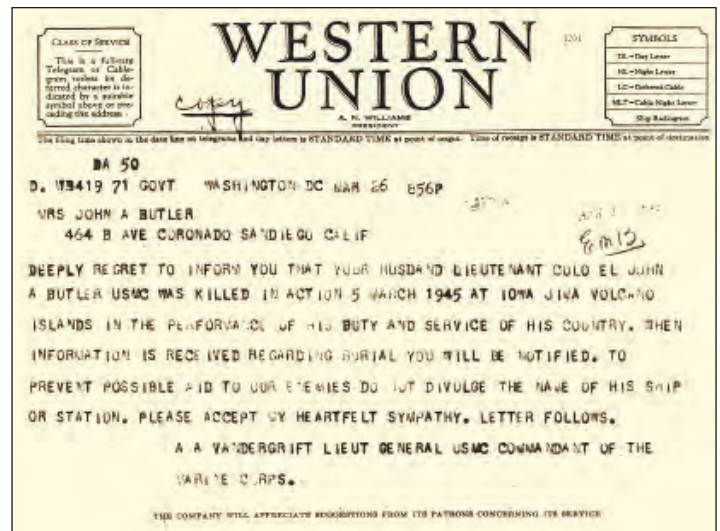 CLASS OF SERVICE
This is a full-rate
Telegram or Cable-
gram unless its de-
ferred character is in-
dicated by a suitable
symbol above or pre-
ceding the address.
WESTERN
UNION
A. N. WILLIAMS
PRESIDENT
1201
SYMBOLS
DL=Day Letter
NL=Night Letter
LC=Deferred Cable
NLT=Cable Night Letter
Ship Radiogram
copy
The filing time shown in the date line on telegrams and day letters is STANDARD TIME at point of origin. Time of receipt is STANDARD TIME at point of destination
DA 50
D. WB419 71 GOVT WASHINGTON DC MAR 26 856P
MRS JOHN A BUTLER
464 B AVE CORONADO SANDIEGO CALIF
EMB
DEEPLY REGRET TO INFORM YOU THAT YOUR HUSBAND LIEUTENANT COLO EL JOHN
A BUTLER USMC WAS KILLED IN ACTION 5 MARCH 1945 AT IOWA JIMA VOLCANO
ISLANDS IN THE PERFORMANCE OF HIS DUTY AND SERVICE OF HIS COUNTRY. WHEN
INFORMATION IS RECEIVED REGARDING BURIAL YOU WILL BE NOTIFIED. TO
PREVENT POSSIBLE AID TO OUR ENEMIES DO NOT DIVULGE THE NAME OF HIS SHIP
OR STATION. PLEASE ACCEPT MY HEARTFELT SYMPATHY. LETTER FOLLOWS.
A A VANDERGRIFT LIEUT GENERAL USMC COMMANDANT OF THE
MARINE CORPS.
THE COMPANY WILL APPRECIATE SUGGESTIONS FROM ITS PATRONS CONCERNING ITS SERVICE